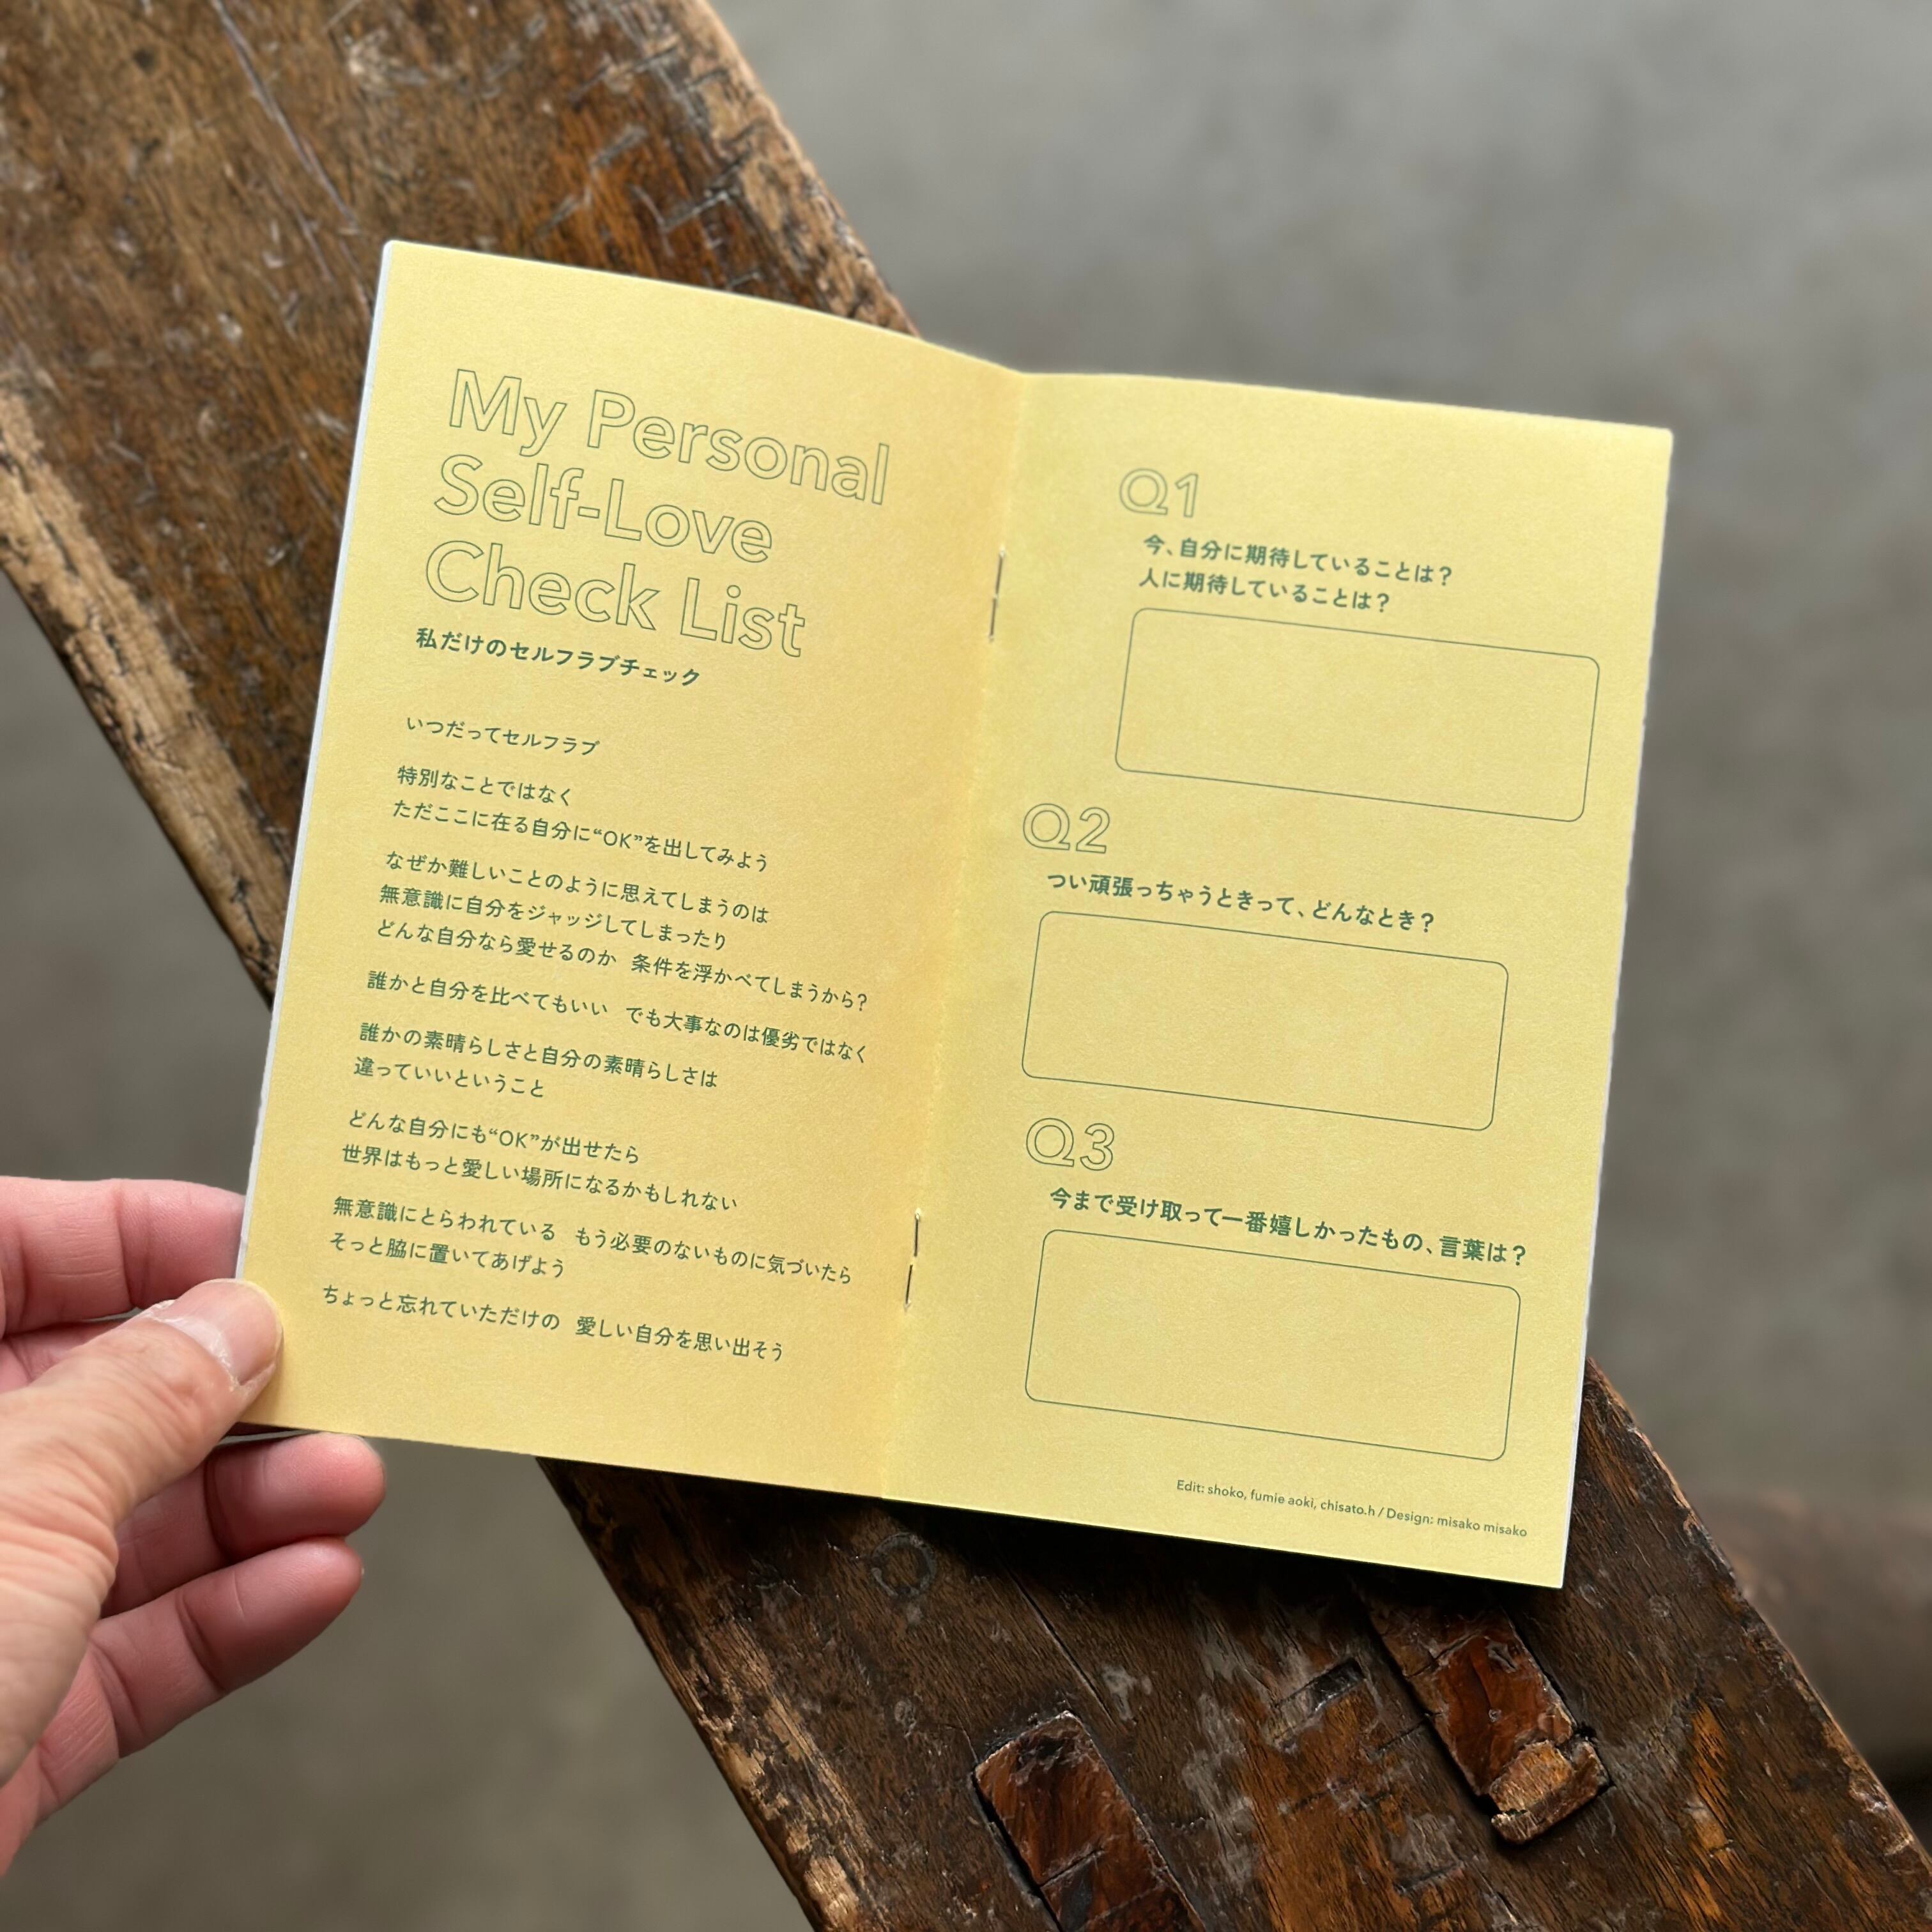 My Personal
Self-Love
Check List
私だけのセルフラブチェック
いつだってセルフラブ
特別なことではなく
ただここに在る自分に“OK”を出してみよう
なぜか難しいことのように思えてしまうのは
無意識に自分をジャッジしてしまったり
どんな自分なら愛せるのか 条件を浮かべてしまうから?
誰かと自分を比べてもいい でも大事なのは優劣ではなく
誰かの素晴らしさと自分の素晴らしさは
違っていいということ
どんな自分にも“OK”が出せたら
世界はもっと愛しい場所になるかもしれない
無意識にとらわれている もう必要のないものに気づいたら
そっと脇に置いてあげよう
ちょっと忘れていただけの 愛しい自分を思い出そう
Q1
今、自分に期待していることは?
人に期待していることは?
Q2
つい頑張っちゃうときって、どんなとき?
Q3
今まで受け取って一番嬉しかったもの、言葉は?
Edit: shoko, fumie aoki, chisato.h / Design: misako misako